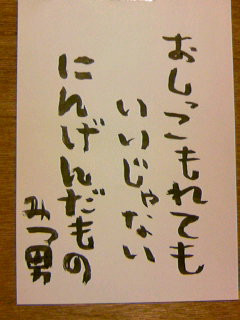 おしっこもれても
いいじゃない
にんげんだもの
みつ男